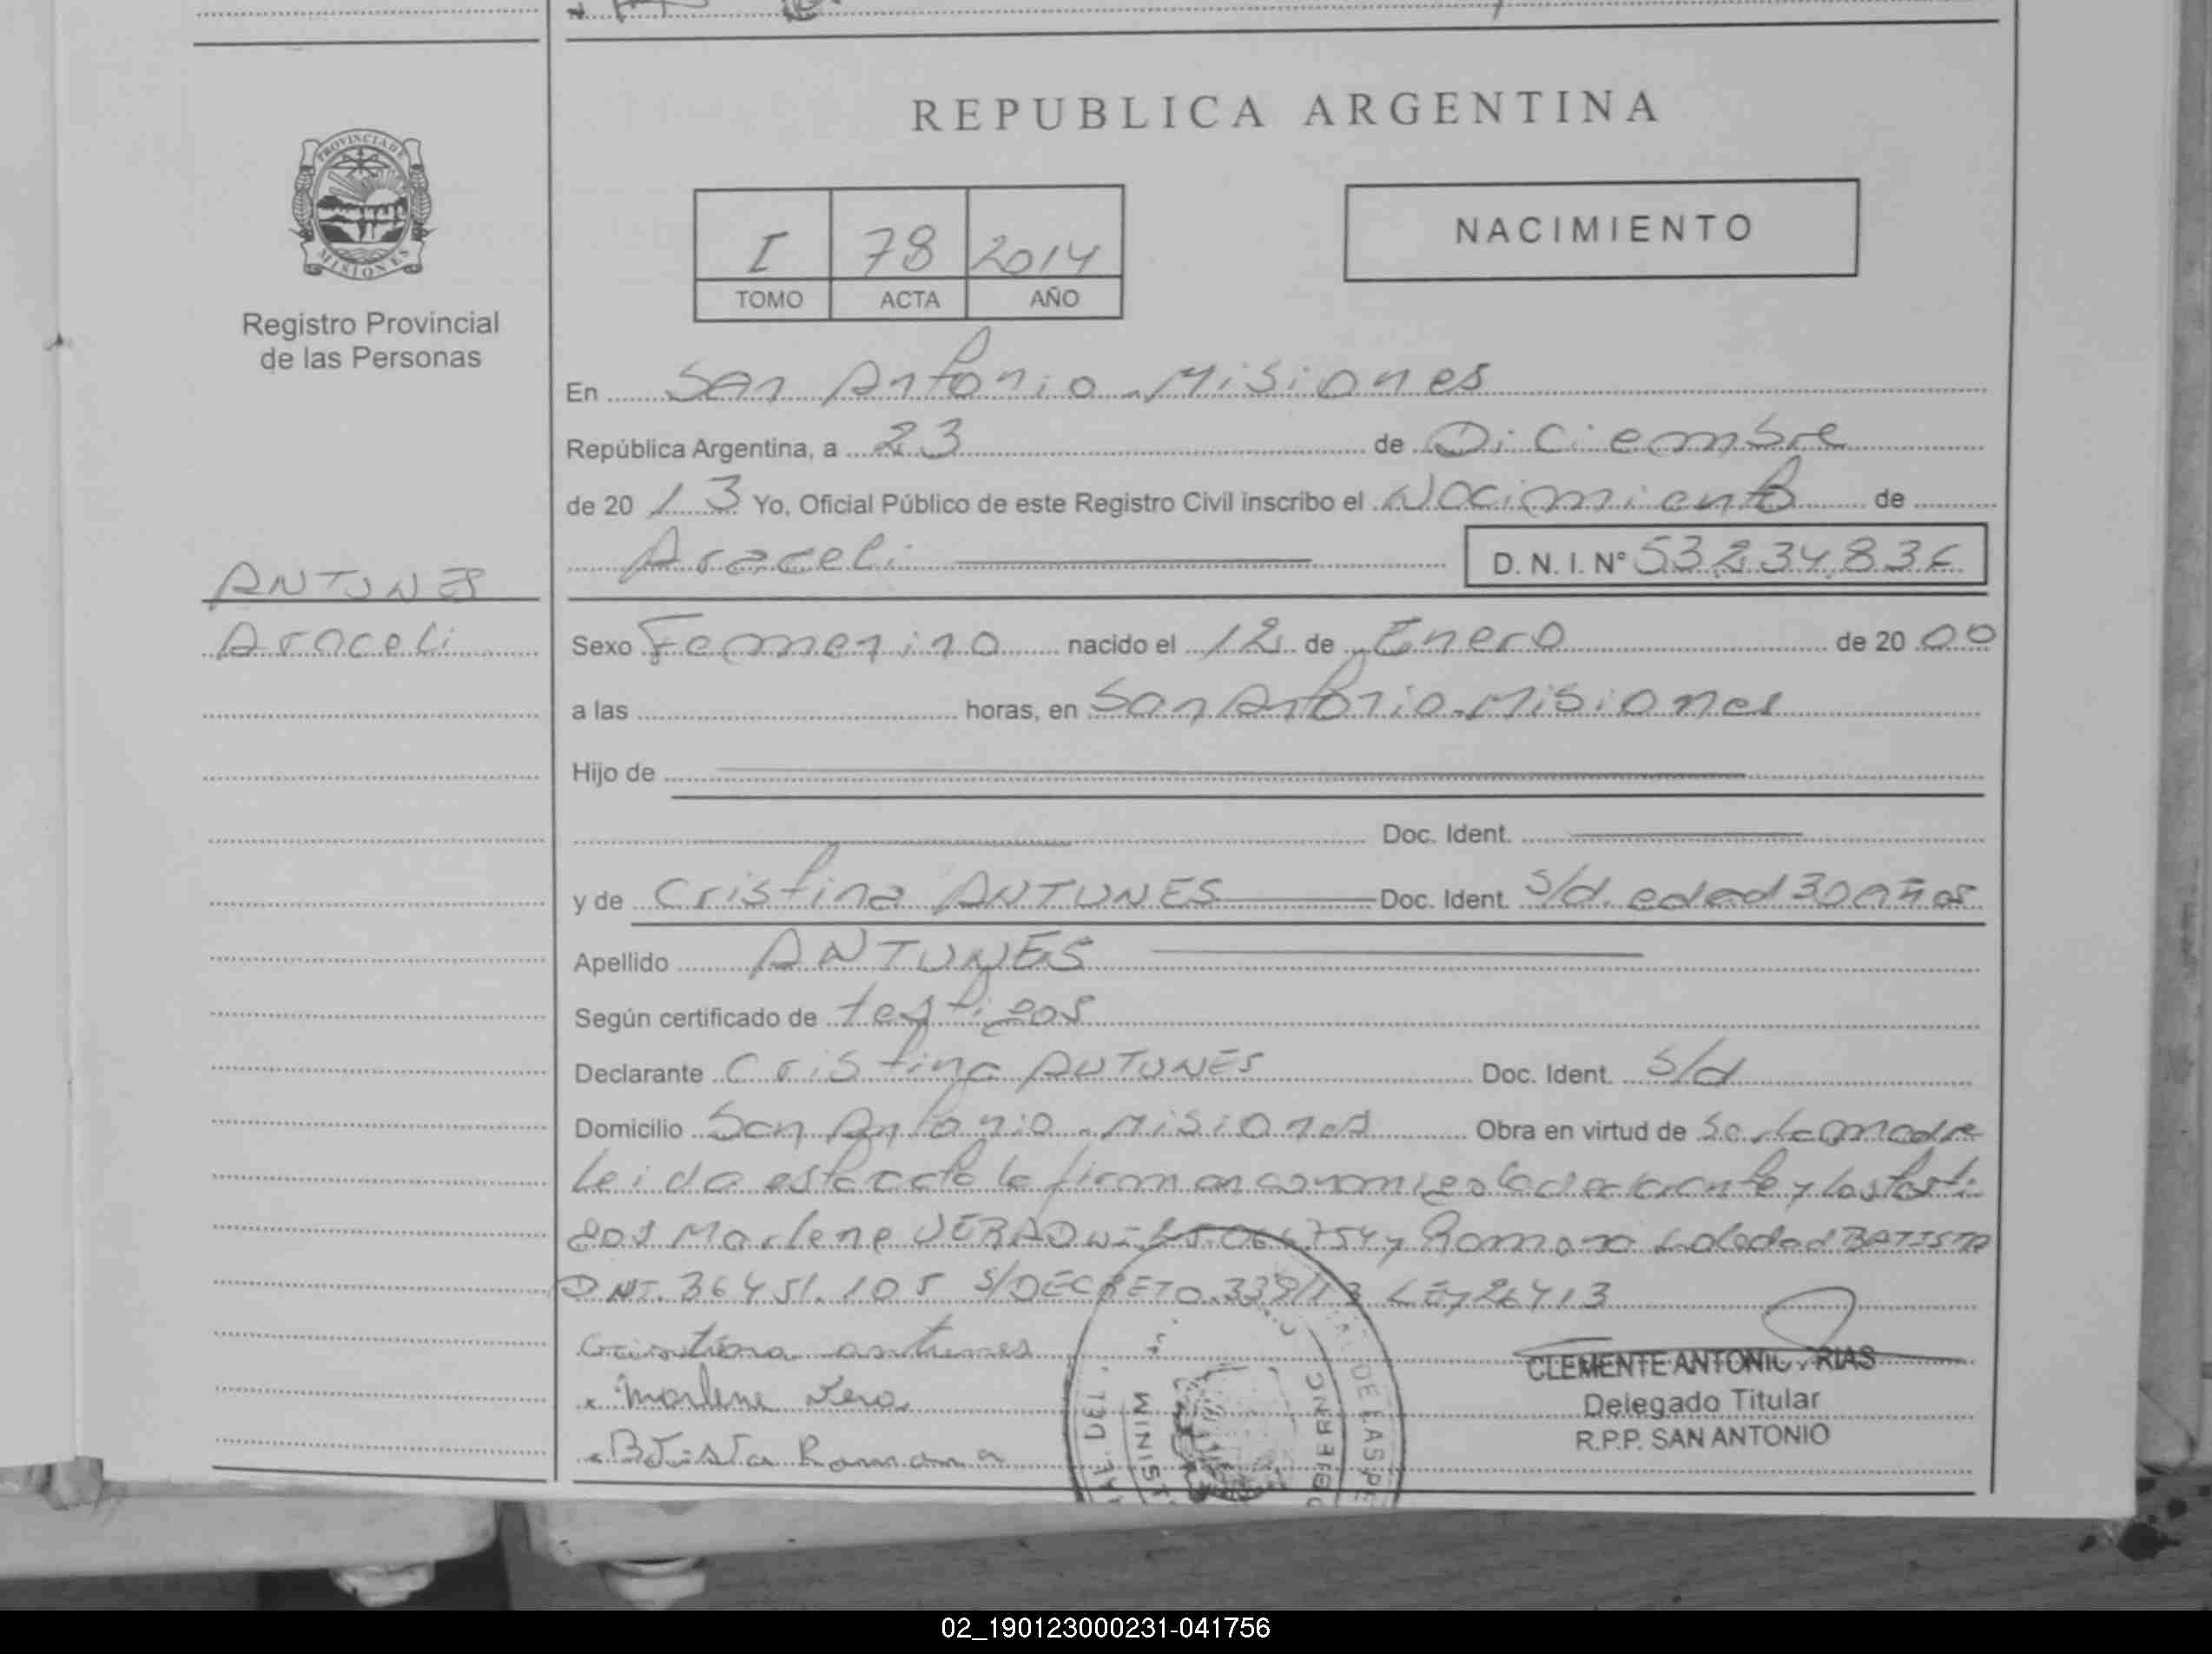 REPUBLICA ARGENTINA
PROVINCIA DE
MISIONES
Registro Provincial
de las Personas
I 78 2014
TOMO ACTA AÑO
NACIMIENTO
En San Antonio - Misiones
República Argentina, a 23 de Diciembre
de 20 13 Yo, Oficial Público de este Registro Civil inscribo el Nacimiento de
Araceli D. N. I. Nº 53.234.836
ANTUNES
Araceli
Sexo Femenino nacido el 12 de Enero de 20 00
a las horas, en San Antonio - Misiones
Hijo de
Doc. Ident.
y de Cristina ANTUNES Doc. Ident. S/d. edad 30 años
Apellido ANTUNES
Según certificado de testigos
Declarante Cristina ANTUNES Doc. Ident. S/d
Domicilio San Antonio - Misiones Obra en virtud de Ser la madre
Leida esta acta la firman conmigo la declarante y los testi
gos Marlene VERA y Romana Soledad BATISTA
DNI. 36451.105 S/DECRETO 339/13 LEY 26413
Cristina antunes
x Marlene Vera
x Batista Romana
CLEMENTE ANTONIO
Delegado Titular
R.P.P. SAN ANTONIO
02_190123000231-041756